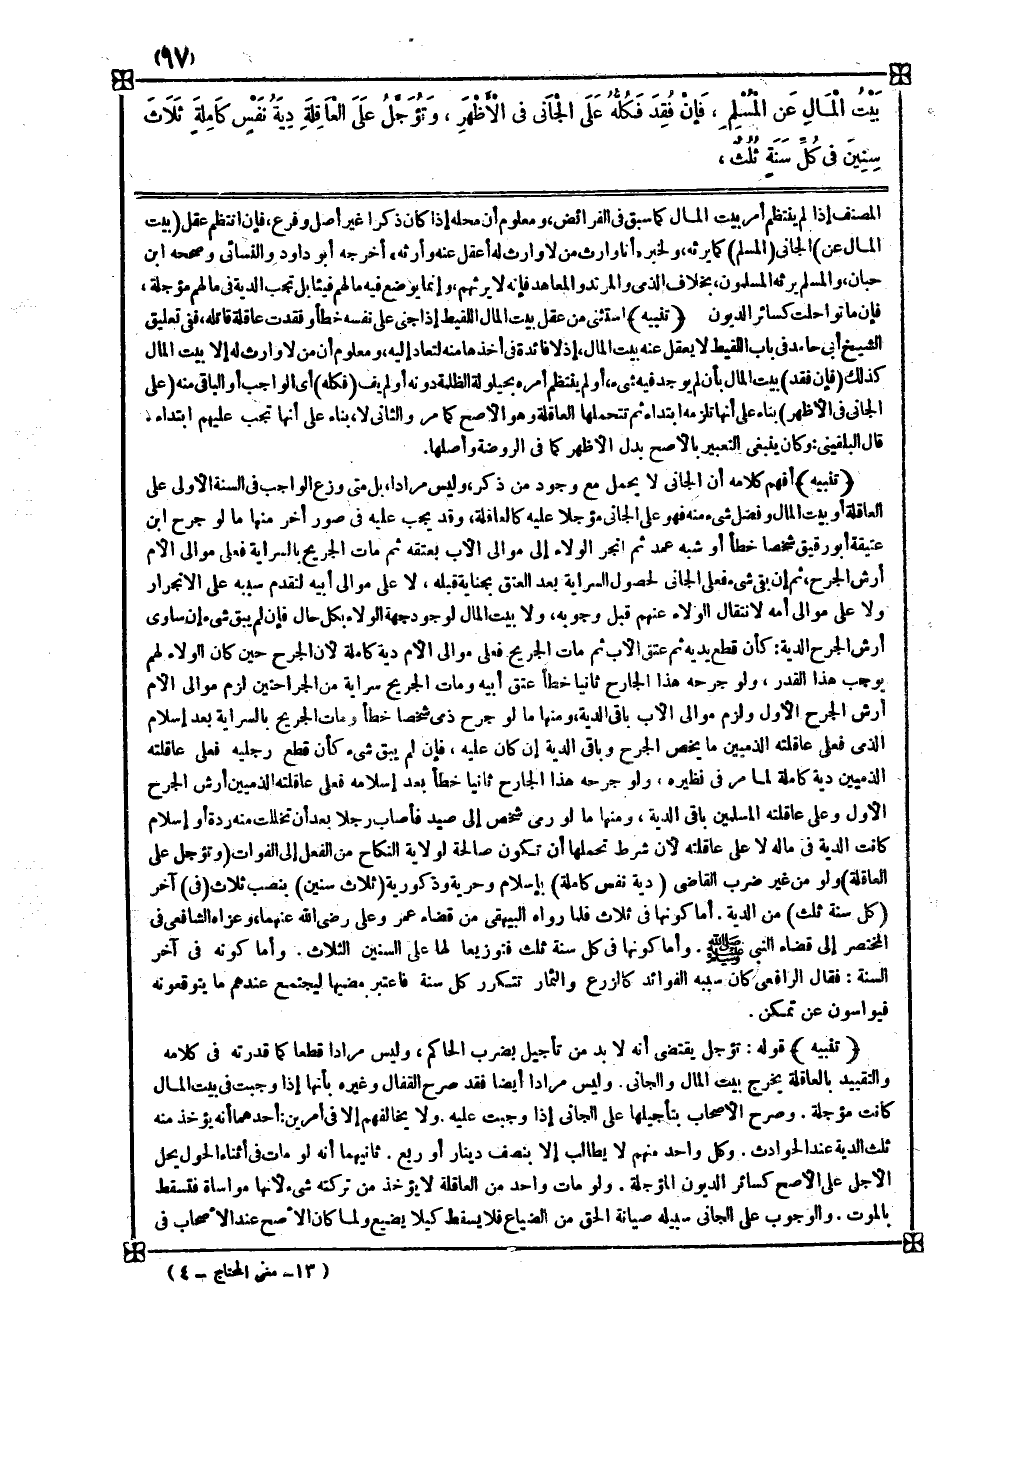 (٩٧)
بَيْتُ الْمَالِ عَنِ الْمُسْلِمِ ، فَإِنْ فُقِدَ فَكُلُّهُ عَلَى الْجَانِي فِي الْأَظْهَرِ ، وَتُؤَجَّلُ عَلَى الْعَاقِلَةِ دِيَةُ نَفْسٍ كَامِلَةٍ ثَلَاثَ
سِنِينَ فِي كُلِّ سَنَةٍ ثُلُثٌ ،
المصنف إذا لم ينتظم أمر بيت المال كما سبق فى الفرائض، ومعلوم أن محله إذا كان ذكرا غير أصل وفرع، فإن انتظم عقل (بيت
المال عن) الجانى (المسلم) كما يرثه، ولخبر «أنا وارث من لا وارث له أعقل عنه وأرثه» أخرجه أبو داود والنسائى وصححه ابن
حبان، والمسلم يرثه المسلمون، بخلاف الذمى والمرتد والمعاهد فإنه لا يرثهم، وإنما يوضع فيه مالهم فيئا بل تجب الدية فى مالهم مؤجلة ،
فإن ماتوا حلت كسائر الديون (تنبيه) استثنى من عقل بيت المال اللقيط إذا جنى على نفسه خطأ وفقدت عاقلة قاتله، ففى تعليق
الشيخ أبى حامد فى باب اللقيط لا يعقل عنه بيت المال، إذ لا فائدة فى أخذها منه لتعاد إليه، ومعلوم أن من لا وارث له إلا بيت المال
كذلك (فإن فقد) بيت المال بأن لم يوجد فيه شىء، أو لم ينتظم أمره بحيلولة الظلمة دونه أو لم يف (فكله) أى الواجب أو الباقى منه (على
الجانى فى الأظهر) بناء على أنها تلزمه ابتداء ثم تتحملها العاقلة وهو الأصح كما مر والثانى لا، بناء على أنها تجب عليهم ابتداء .
قال البلقينى: وكان ينبغى التعبير بالأصح بدل الأظهر كما فى الروضة وأصلها.
(تنبيه) أفهم كلامه أن الجانى لا يحمل مع وجود من ذكر، وليس مرادا، بل متى وزع الواجب فى السنة الأولى على
العاقلة أو بيت المال وفضل شىء منه فهو على الجانى مؤجلا عليه كالعاقلة، وقد يجب عليه فى صور أخر منها ما لو جرح ابن
عتيقة أبوه رقيق شخصا خطأ أو شبه عمد ثم انجر الولاء إلى موالى الأب بعتقه ثم مات الجريح بالسراية فعلى موالى الأم
أرش الجرح، ثم إن بقى شىء فعلى الجانى لحصول السراية بعد العتق بجناية قبله ، لا على موالى أبيه لتقدم سببه على الانجرار
ولا على موالى أمه لانتقال الولاء عنهم قبل وجوبه، ولا بيت المال لوجود جهة الولاء بكل حال فإن لم يبق شىء إن ساوى
أرش الجرح الدية: كأن قطع يديه ثم عتق الأب ثم مات الجريح فعلى موالى الأم دية كاملة لأن الجرح حين كان الولاء لهم
يوجب هذا القدر ، ولو جرحه هذا الجارح ثانيا خطأ عتق أبيه ومات الجريح سراية من الجراحتين لزم موالى الأم
أرش الجرح الأول ولزم موالى الأب باقى الدية، ومنها ما لو جرح ذمى شخصا خطأ ومات الجريح بالسراية بعد إسلام
الذمى فعلى عاقلته الذميين ما يخص الجرح وباقى الدية إن كان عليه ، فإن لم يبق شىء كأن قطع رجليه فعلى عاقلته
الذميين دية كاملة لما مر فى نظيره ، ولو جرحه هذا الجارح ثانيا خطأ بعد إسلامه فعلى عاقلته الذميين أرش الجرح
الأول وعلى عاقلته المسلمين باقى الدية ، ومنها ما لو رمى شخص إلى صيد فأصاب رجلا بعد أن تخللت منه ردة أو إسلام
كانت الدية فى ماله لا على عاقلته لأن شرط تحملها أن تكون صالحة لولاية النكاح من الفعل إلى الفوات (وتؤجل على
العاقلة) ولو من غير ضرب القاضى (دية نفس كاملة) بإسلام وحرية وذكورية (ثلاث سنين) بنصب ثلاث (فى) آخر
(كل سنة ثلث) من الدية . أما كونها فى ثلاث فلما رواه البيهقى من قضاء عمر وعلى رضى الله عنهما، وعزاه الشافعى فى
المختصر إلى قضاء النبى ﷺ . وأما كونها فى كل سنة ثلث فتوزيعا لها على السنين الثلاث . وأما كونه فى آخر
السنة : فقال الرافعى كان سببه الفوائد كالزرع والثمار تتكرر كل سنة فاعتبر مضيها ليجتمع عندهم ما يتوقعونه
فيواسون عن تمكن .
(تنبيه) قوله : تؤجل يقتضى أنه لا بد من تأجيل بضرب الحاكم ، وليس مرادا قطعا كما قدرته فى كلامه
والتقييد بالعاقلة يخرج بيت المال والجانى . وليس مرادا أيضا فقد صرح القفال وغيره بأنها إذا وجبت فى بيت المال
كانت مؤجلة . وصرح الأصحاب بتأجيلها على الجانى إذا وجبت عليه . ولا يخالفهم إلا فى أمرين: أحدهما أنه يؤخذ منه
ثلث الدية عند الحوادث . وكل واحد منهم لا يطالب إلا بنصف دينار أو ربع . ثانيهما أنه لو مات فى أثناء الحول يحل
الأجل على الأصح كسائر الديون المؤجلة . ولو مات واحد من العاقلة لا يؤخذ من تركته شىء لأنها مواساة فتسقط
بالموت . والوجوب على الجانى سبيله صيانة الحق من الضياع فلا يسقط كيلا يضيع ولما كان الأصح عند الأصحاب فى
( ١٣ - مغنى المحتاج - ٤ )